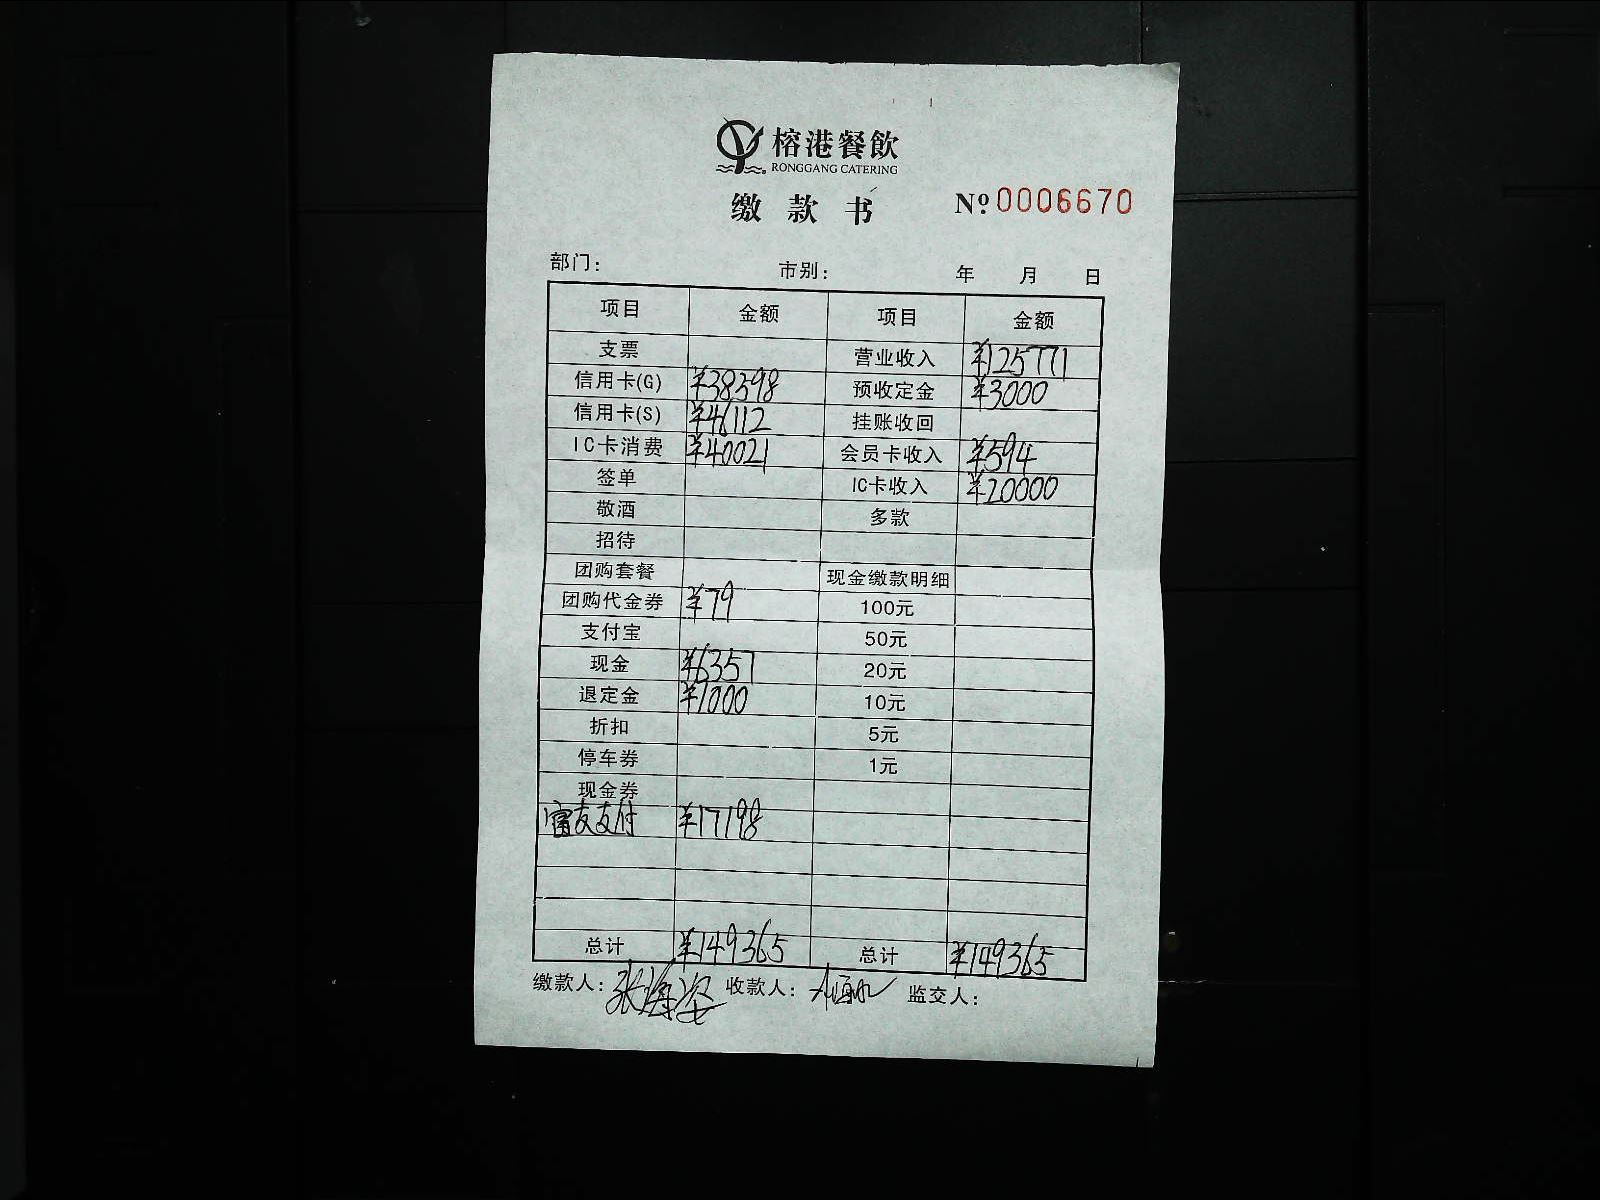 榕港餐飲
RONGGANG CATERING
缴款书 № 0006670
部门： 市别： 年 月 日
项目 金额 项目 金额
支票 营业收入 ¥125771
信用卡(G) ¥38598 预收定金 ¥3000
信用卡(S) ¥46112 挂账收回
IC卡消费 ¥40021 会员卡收入 ¥594
签单 IC卡收入 ¥20000
敬酒 多款
招待
团购套餐 现金缴款明细
团购代金券 ¥79 100元
支付宝 50元
现金 ¥6357 20元
退定金 ¥1000 10元
折扣 5元
停车券 1元
现金券
富友支付 ¥17198
总计 ¥149365 总计 ¥149365
缴款人：张海姿 收款人： 监交人：